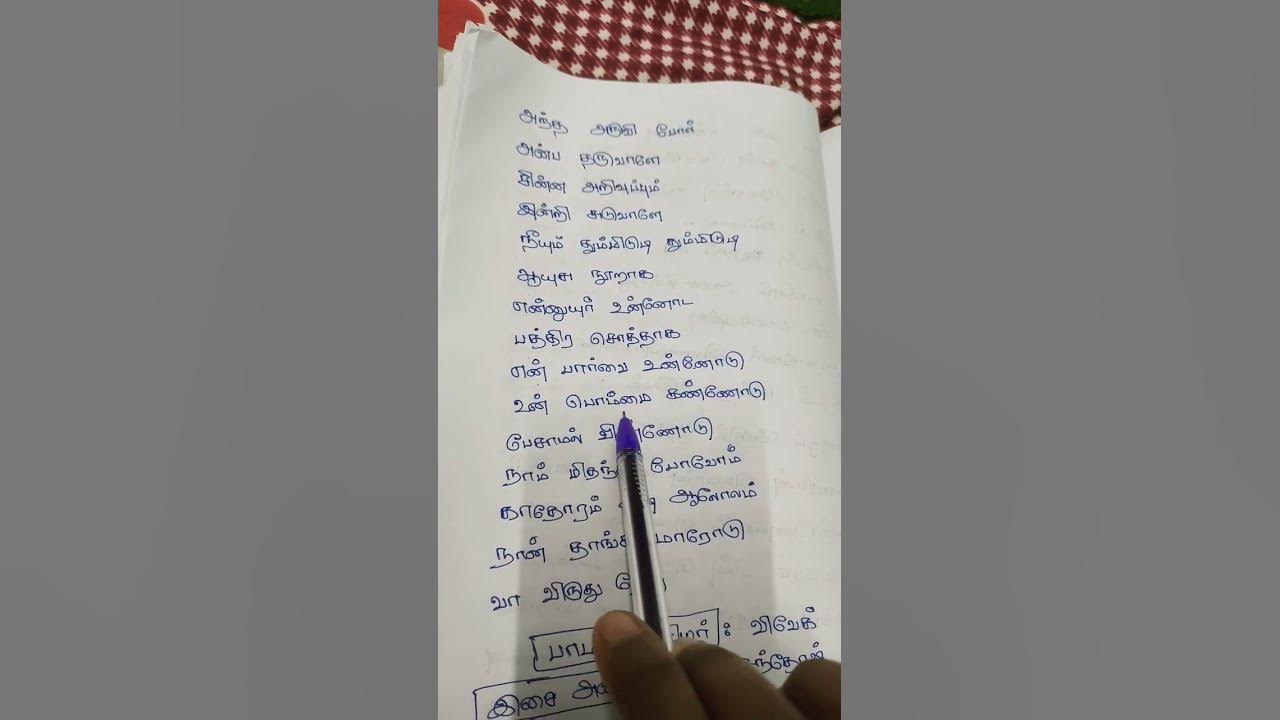 அந்த அருவி போல்
அன்ப தருவாளே
சின்ன அறிவுப்பும்
இன்றி சுடுவாளே
நீயும் தும்மிடுடி தும்மிடுடி
ஆயுசு நூறாக
என்னுயுர் உன்னோட
பத்திர சொத்தாக
என் பார்வை உன்னோடு
உன் பொம்மை கண்ணோடு
பேசாமல்
நாம் போவோம்
காதோரம் ஆலோலம்
நான் மாரோடு
வா விருது
: விவேக்
இசை